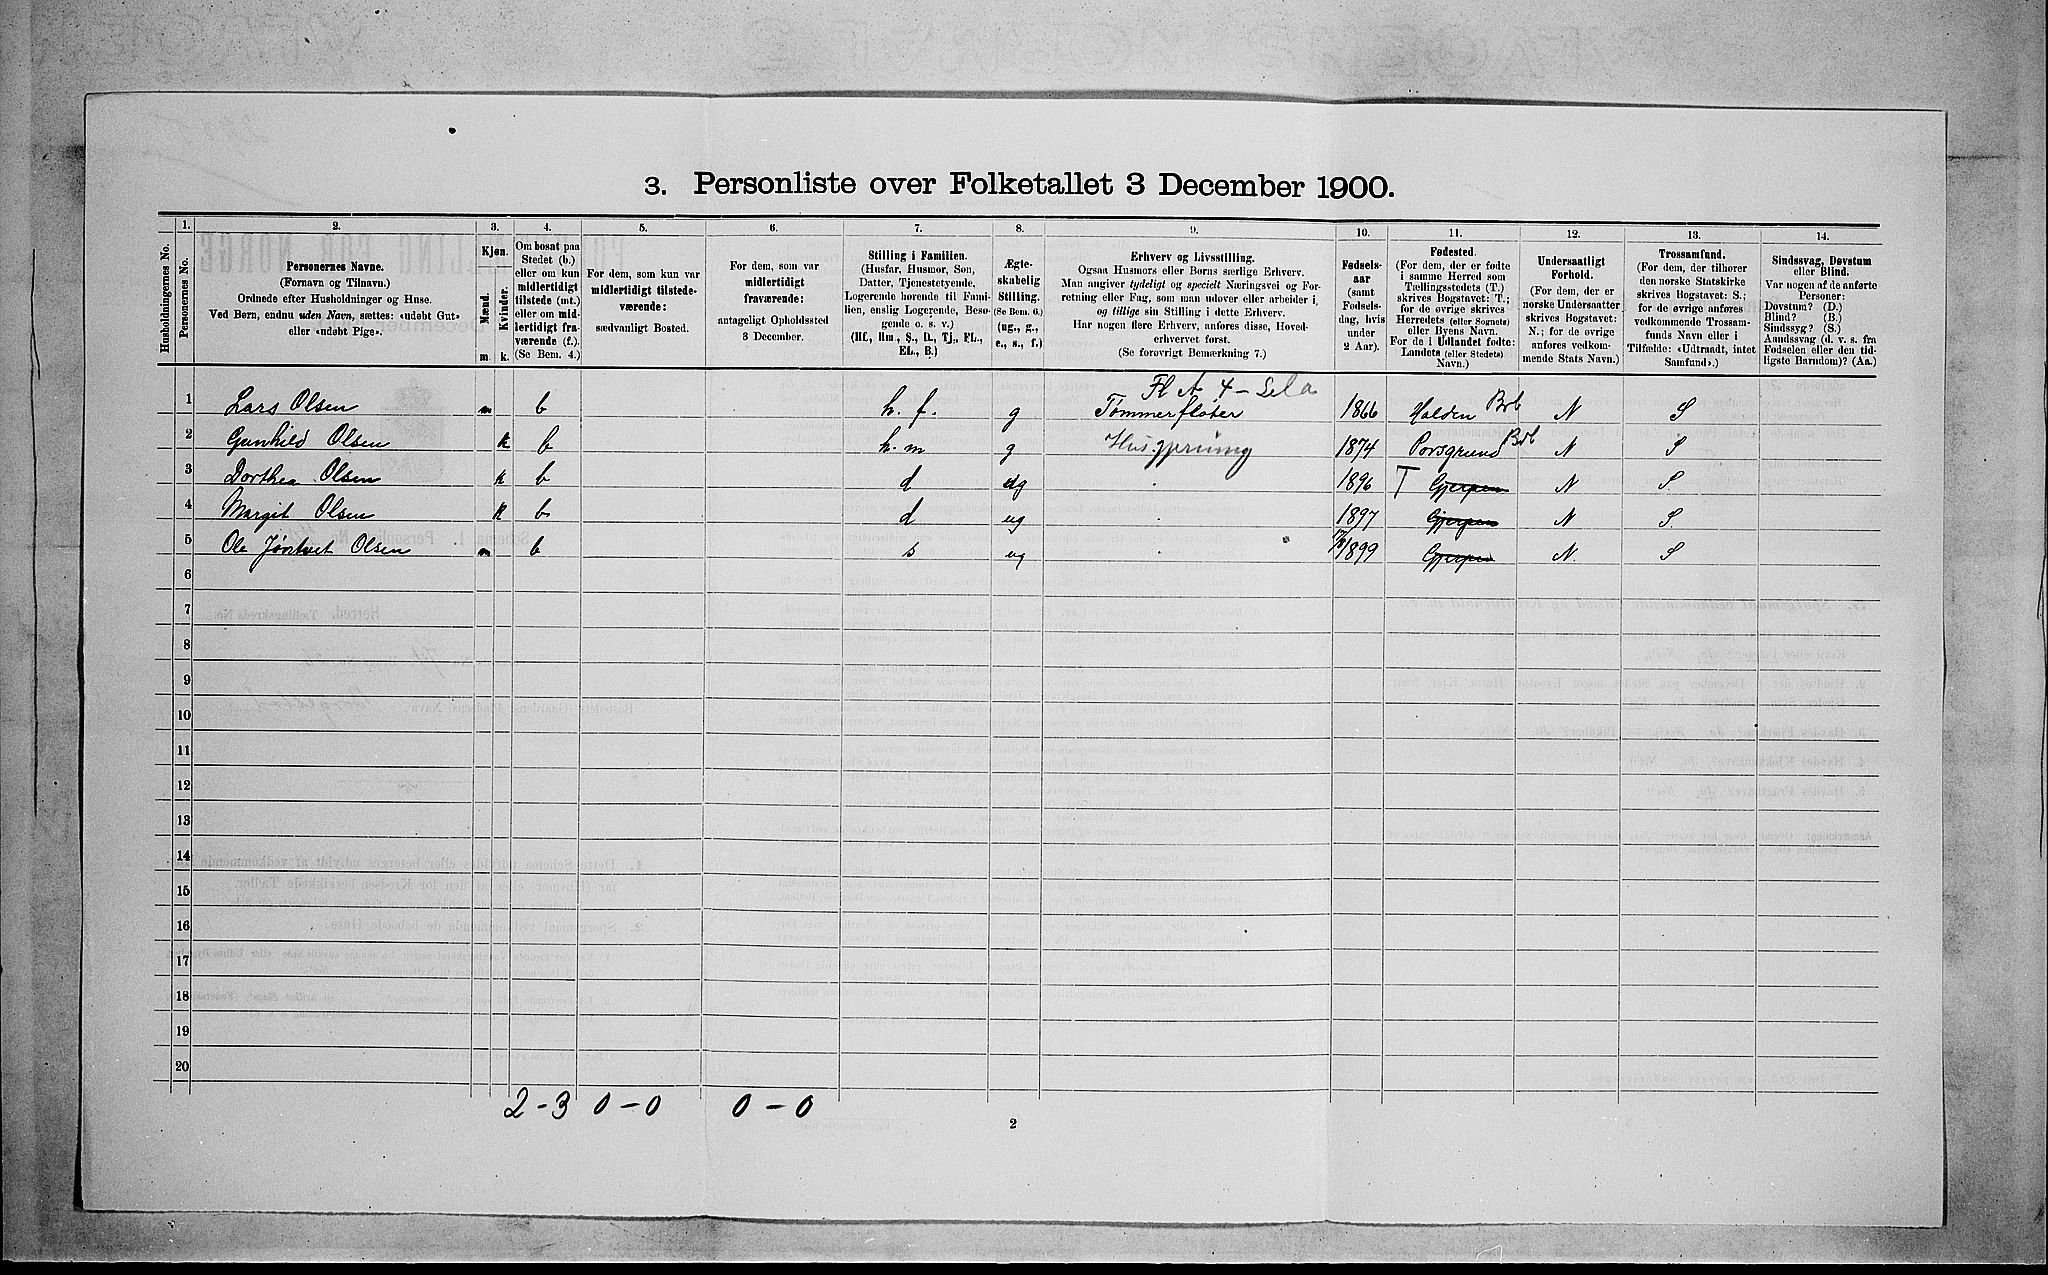 3. Personliste over Folketallet 3 December 1900.
1. 2. 3. 4. 5. 6. 7. 8. 9. 10. 11. 12. 13. 14.
Husholdningernes No.
Personernes No.
Personernes Navne.
(Fornavn og Tilnavn.)
Ordnede efter Husholdninger og Huse.
Ved Børn, endnu uden Navn, sættes: «udøbt Gut»
eller «udøbt Pige».
Kjøn.
Mænd.
Kvinder.
m. k.
Om bosat paa
Stedet (b.)
eller om kun
midlertidigt
tilstede (mt.)
eller om mid-
lertidigt fra-
værende (f.).
(Se Bem. 4.)
For dem, som kun var
midlertidigt tilstede-
værende:
sædvanligt Bosted.
For dem, som var
midlertidigt
fraværende:
antageligt Opholdssted
3 December.
Stilling i Familien.
(Husfar, Husmor, Søn,
Datter, Tjenestetyende,
Logerende hørende til Fami-
lien, enslig Logerende, Besø-
gende o. s. v.)
(Hf., Hm., S., D., Tj., FL.,
EL., B.)
Ægte-
skabelig
Stilling.
(Se Bem. 6.)
(ug., g.,
e., s., f.)
Erhverv og Livsstilling.
Ogsaa Husmors eller Børns særlige Erhverv.
Man angiver tydeligt og specielt Næringsvei og For-
retning eller Fag, som man udøver eller arbeider i,
og tillige sin Stilling i dette Erhverv.
Har nogen flere Erhverv, anføres disse, Hoved-
erhvervet først.
(Se forøvrigt Bemærkning 7.)
Fødsels-
aar
(samt
Fødsels-
dag, hvis
under
2 Aar).
Fødested.
(For dem, der er fødte
i samme Herred som
Tællingsstedets (T.)
skrives Bogstavet: T.;
for de øvrige skrives
Herredets (eller Sognets)
eller Byens Navn.
For de i Udlandet fødte:
Landets (eller Stedets)
Navn.)
Undersaatligt
Forhold.
(For dem, der er
norske Undersaatter
skrives Bogstavet:
N.; for de øvrige
anføres vedkom-
mende Stats Navn.)
Trossamfund.
(For dem, der tilhører
den norske Statskirke
skrives Bogstavet: S.;
for de øvrige anføres
vedkommende Trossam-
funds Navn eller i
Tilfælde: «Udtraadt, intet
Samfund».)
Sindssvag, Døvstum
eller Blind.
Var nogen af de anførte
Personer:
Døvstum? (D.)
Blind? (B.)
Sindssyg? (S.)
Aandssvag (d. v. s. fra
Fødselen eller den tid-
ligste Barndom)? (Aa.)
Fl A 4 -
1 Lars Olsen m b h. f. g Tømmerfløter 1866 Holden Bvb N S
2 Gunhild Olsen k b h. m g Husgjerning 1874 Porsgrund Bvb N S
3 Dorthea Olsen k b d ug 1896 T Gjerpen N S.
4 Margit Olsen k b d ug 1897 Gjerpen N S.
5 Ole Jøntvet Olsen m b s ug 1899 Gjerpen N. S
6
7
8
9
10
11
12
13
14
15
16
17
18
19
20
2 - 3 0 - 0 0 - 0
2